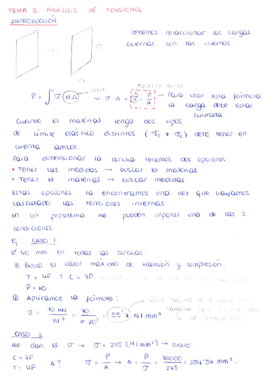 TEMA 3: ANALISIS DE TENSIONES
INTRODUCCIÓN
Tenemos relaccionar las cargas
externas con las internas.
P = ∫ σ dΩ → σ A = σ = P/A → Para usar esta fórmula
la carga debe estar
centrada
Cuando el material tenga dos tipos
de límite elástico distintos (σt ≠ σc) debo tener en
cuenta ambos.
Para dimensionar la cercha tenemos dos opciones
• Tener las medidas → buscar el material.
• Tener el material → buscar medidas.
Estas opciones la encontramos una vez que hayamos
calculado las tensiones internas
En un problema me pueden imponer una de las 2
condiciones.
Ej: CASO 1
Ø 40 mm en todas las cerchas:
① Busco el valor máximo de tracción y compresión:
T = 4P ? C = 7P
P = 10.
② Aplicamos la fórmula:
σ = 70 KN / πr² = 70 / π 20² = 55'7 N/mm²
CASO 2
Me dan el σ → σ = 275 (N/mm²) → acero
C = 7P
T = 4P
A? σ = P/A → A = P/σ = 70000/275 = 254'54 mm².